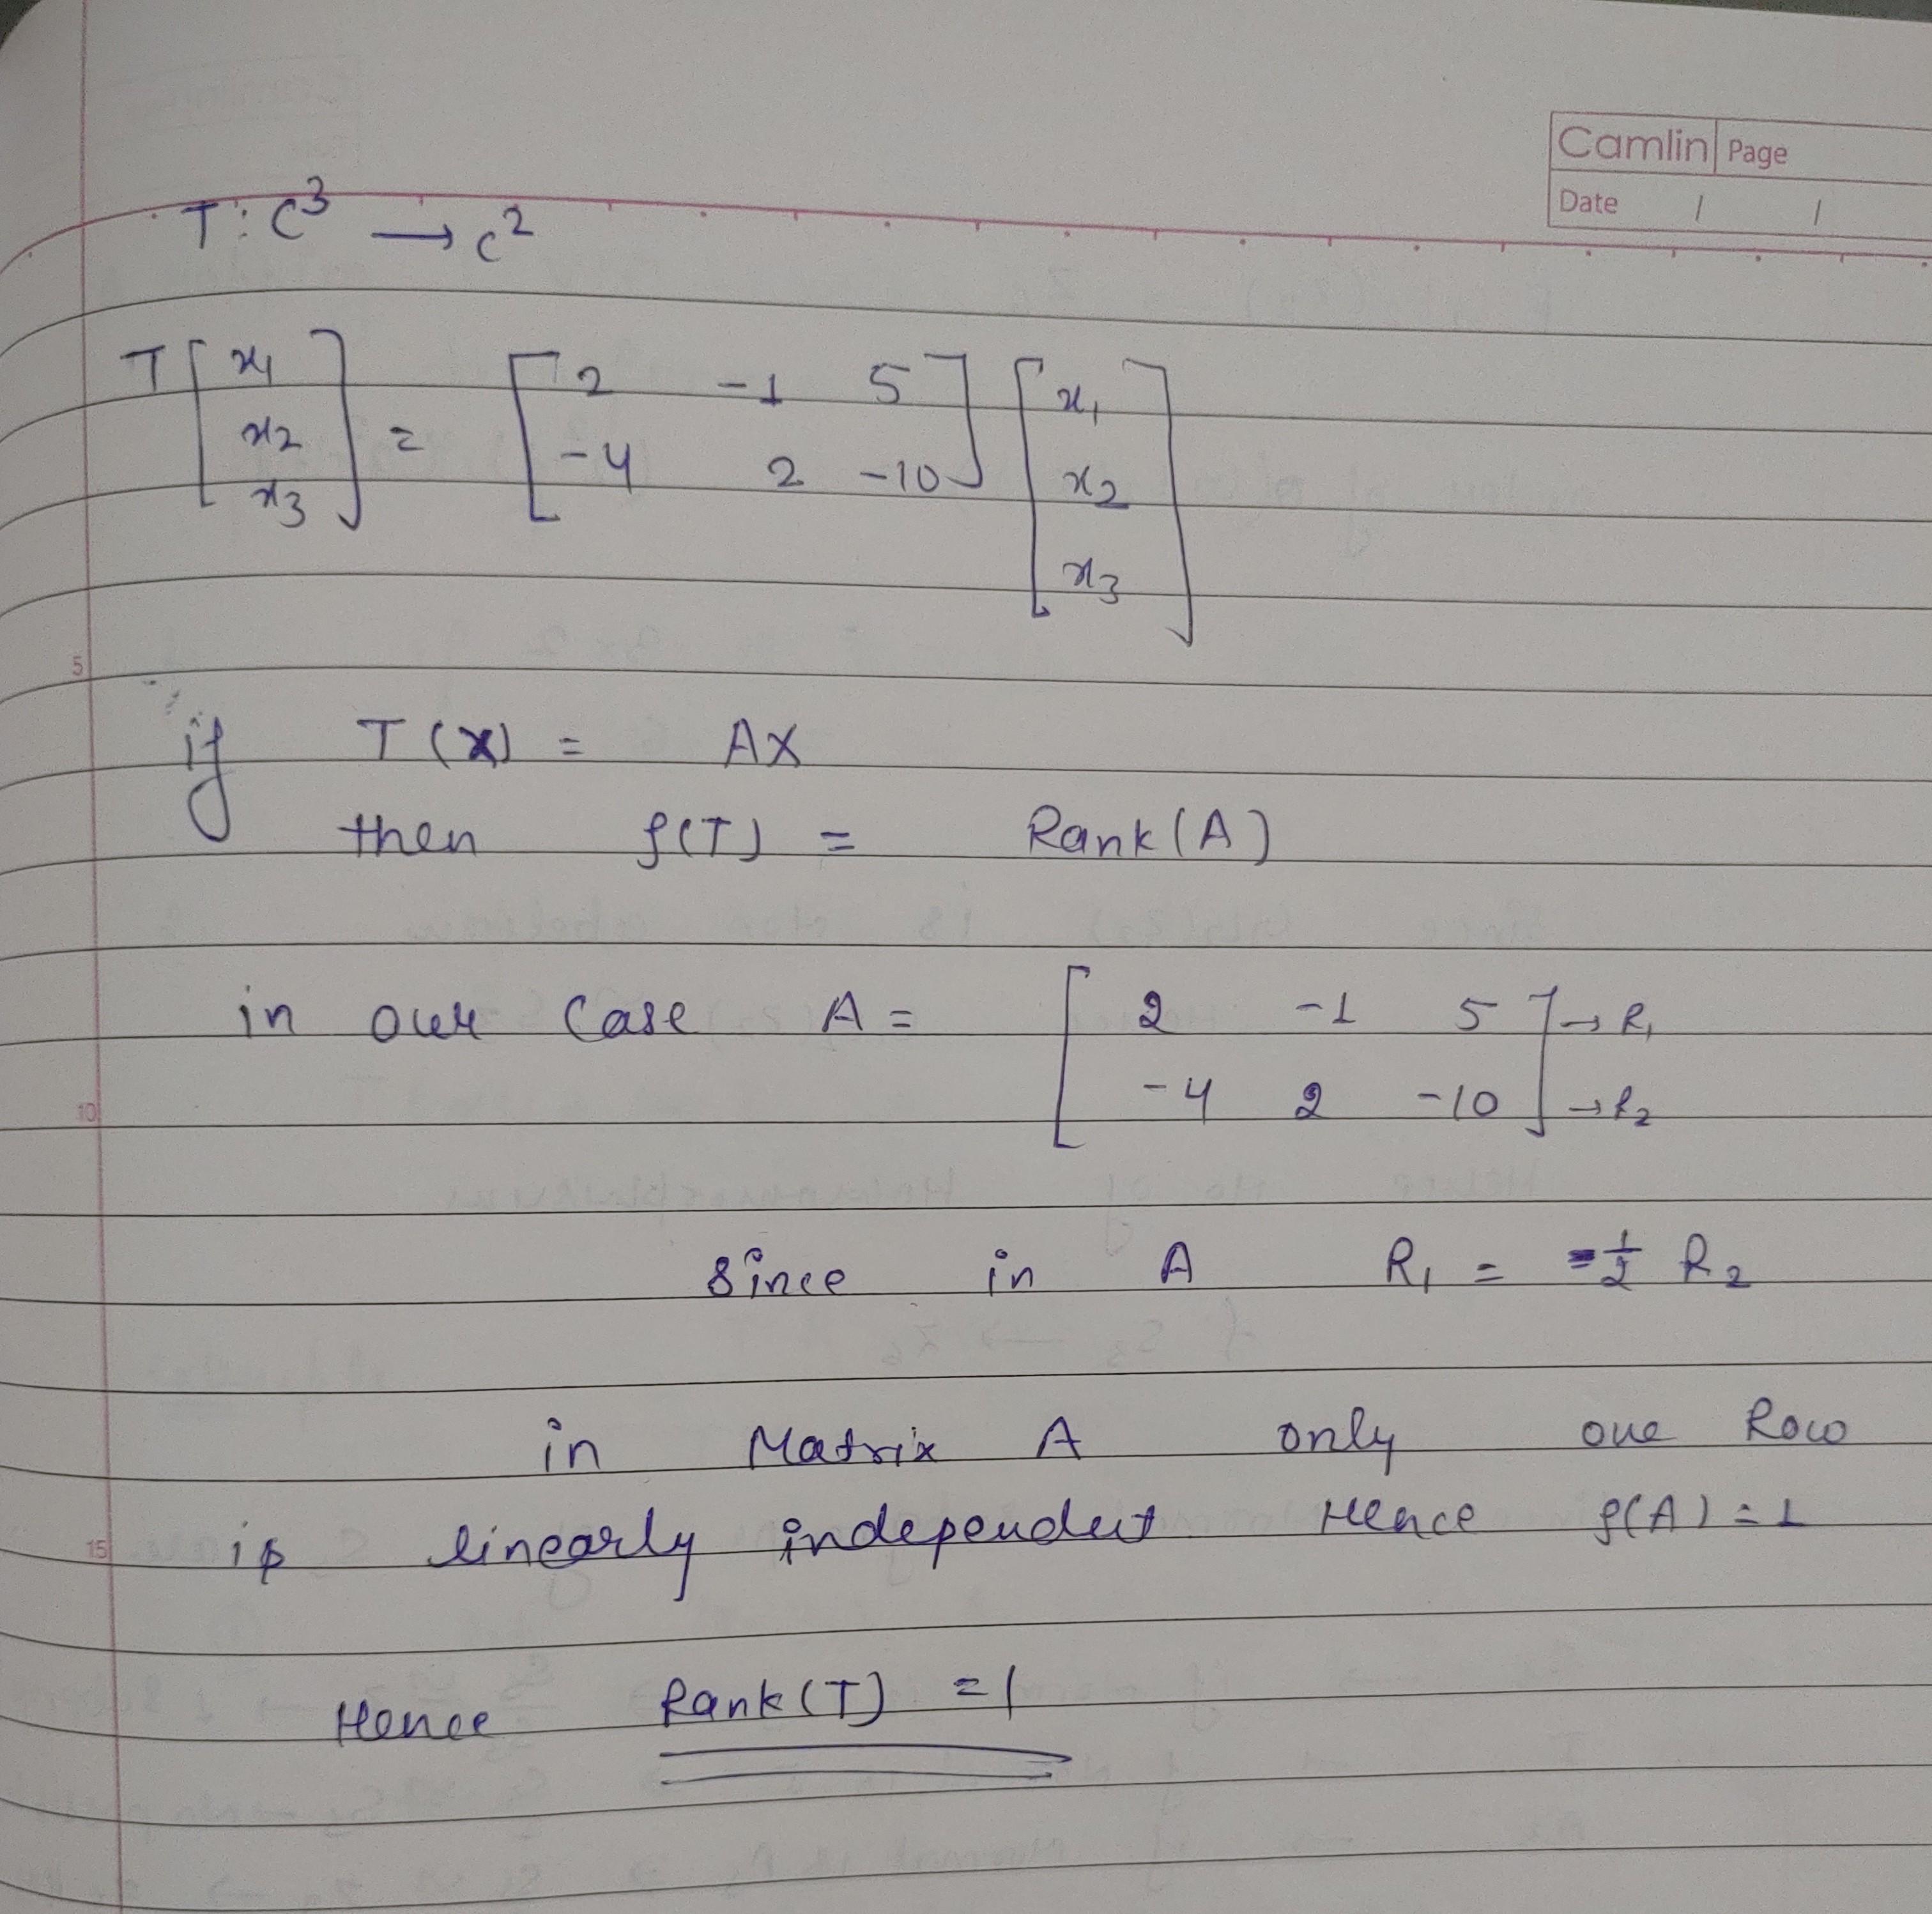 Camlin Page
Date / /
T: C³ → C²
T [x₁ x₂ x₃] = [2 -1 5
-4 2 -10] [x₁ x₂ x₃]
5
if T(x) = AX
then ρ(T) = Rank(A)
in our Case A = [2 -1 5] → R₁
10 [-4 2 -10] → R₂
Since in A R₁ = -1/2 R₂
in Matrix A only one Row
15 is linearly independent Hence ρ(A) = 1
Hence Rank(T) = 1